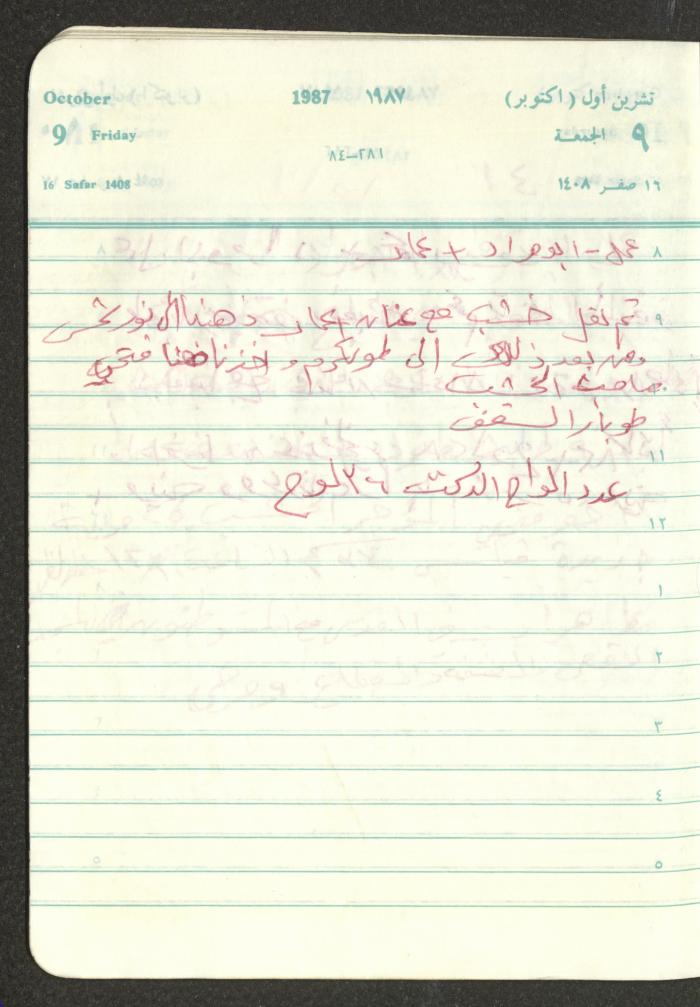 October 1987 ١٩٨٧ تشرين أول (اكتوبر)
9 Friday ٩ الجمعة
٢٨١–٨٤
16 Safar 1408 ١٦ صفر ١٤٠٨
٨ عمل - ابو مراد + عماد
٩ تم نقل خشب مع عنان عمار ذهبنا الى نور شمس
ومن بعد ذلك الى طولكرم و اخذنا فتحي
صاحب الخشب
طوبار السقف
١١
عدد الواح الدكت ٢٦ لوح
١٢
١
٢
٣
٤
٥